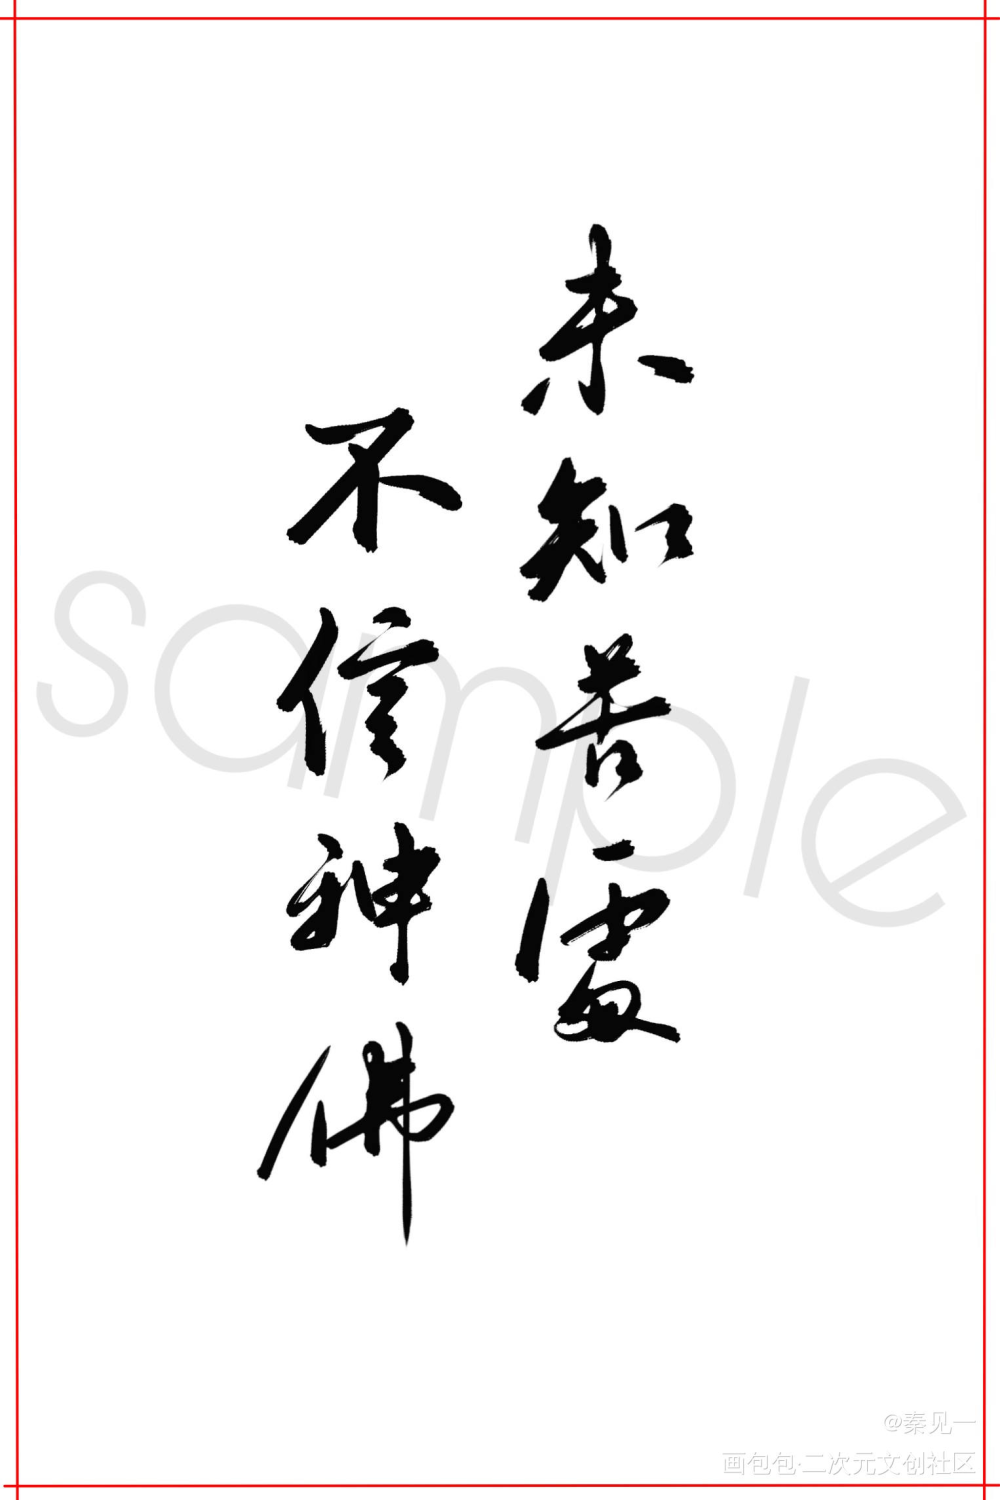 未知苦處
不信神佛
sample
@秦见一
画包包·二次元文创社区